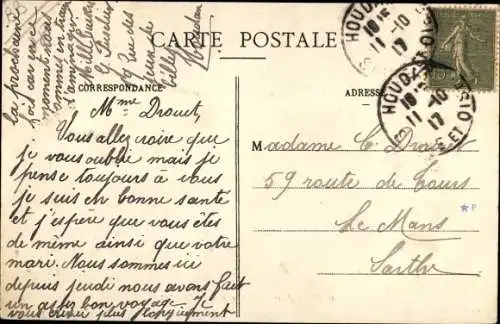 CARTE POSTALE
CORRESPONDANCE
ADRESSE
HOUDAN
11-10
17
HOUDAN
18
11-10
17
S-ET-OISE
la prochaine
fois car en ce
moment
rue des
Mme Drouet,
Vous allez croire que
je vous oublie mais je
pense toujours à vous
je suis en bonne santé
et j'espère que vous êtes
de même ainsi que votre
mari. Nous sommes ici
depuis jeudi nous avons fait
un assez bon voyage. Je
vous écrirai plus longuement
Madame C. Drouet
59 route de Tours
Le Mans
Sarthe